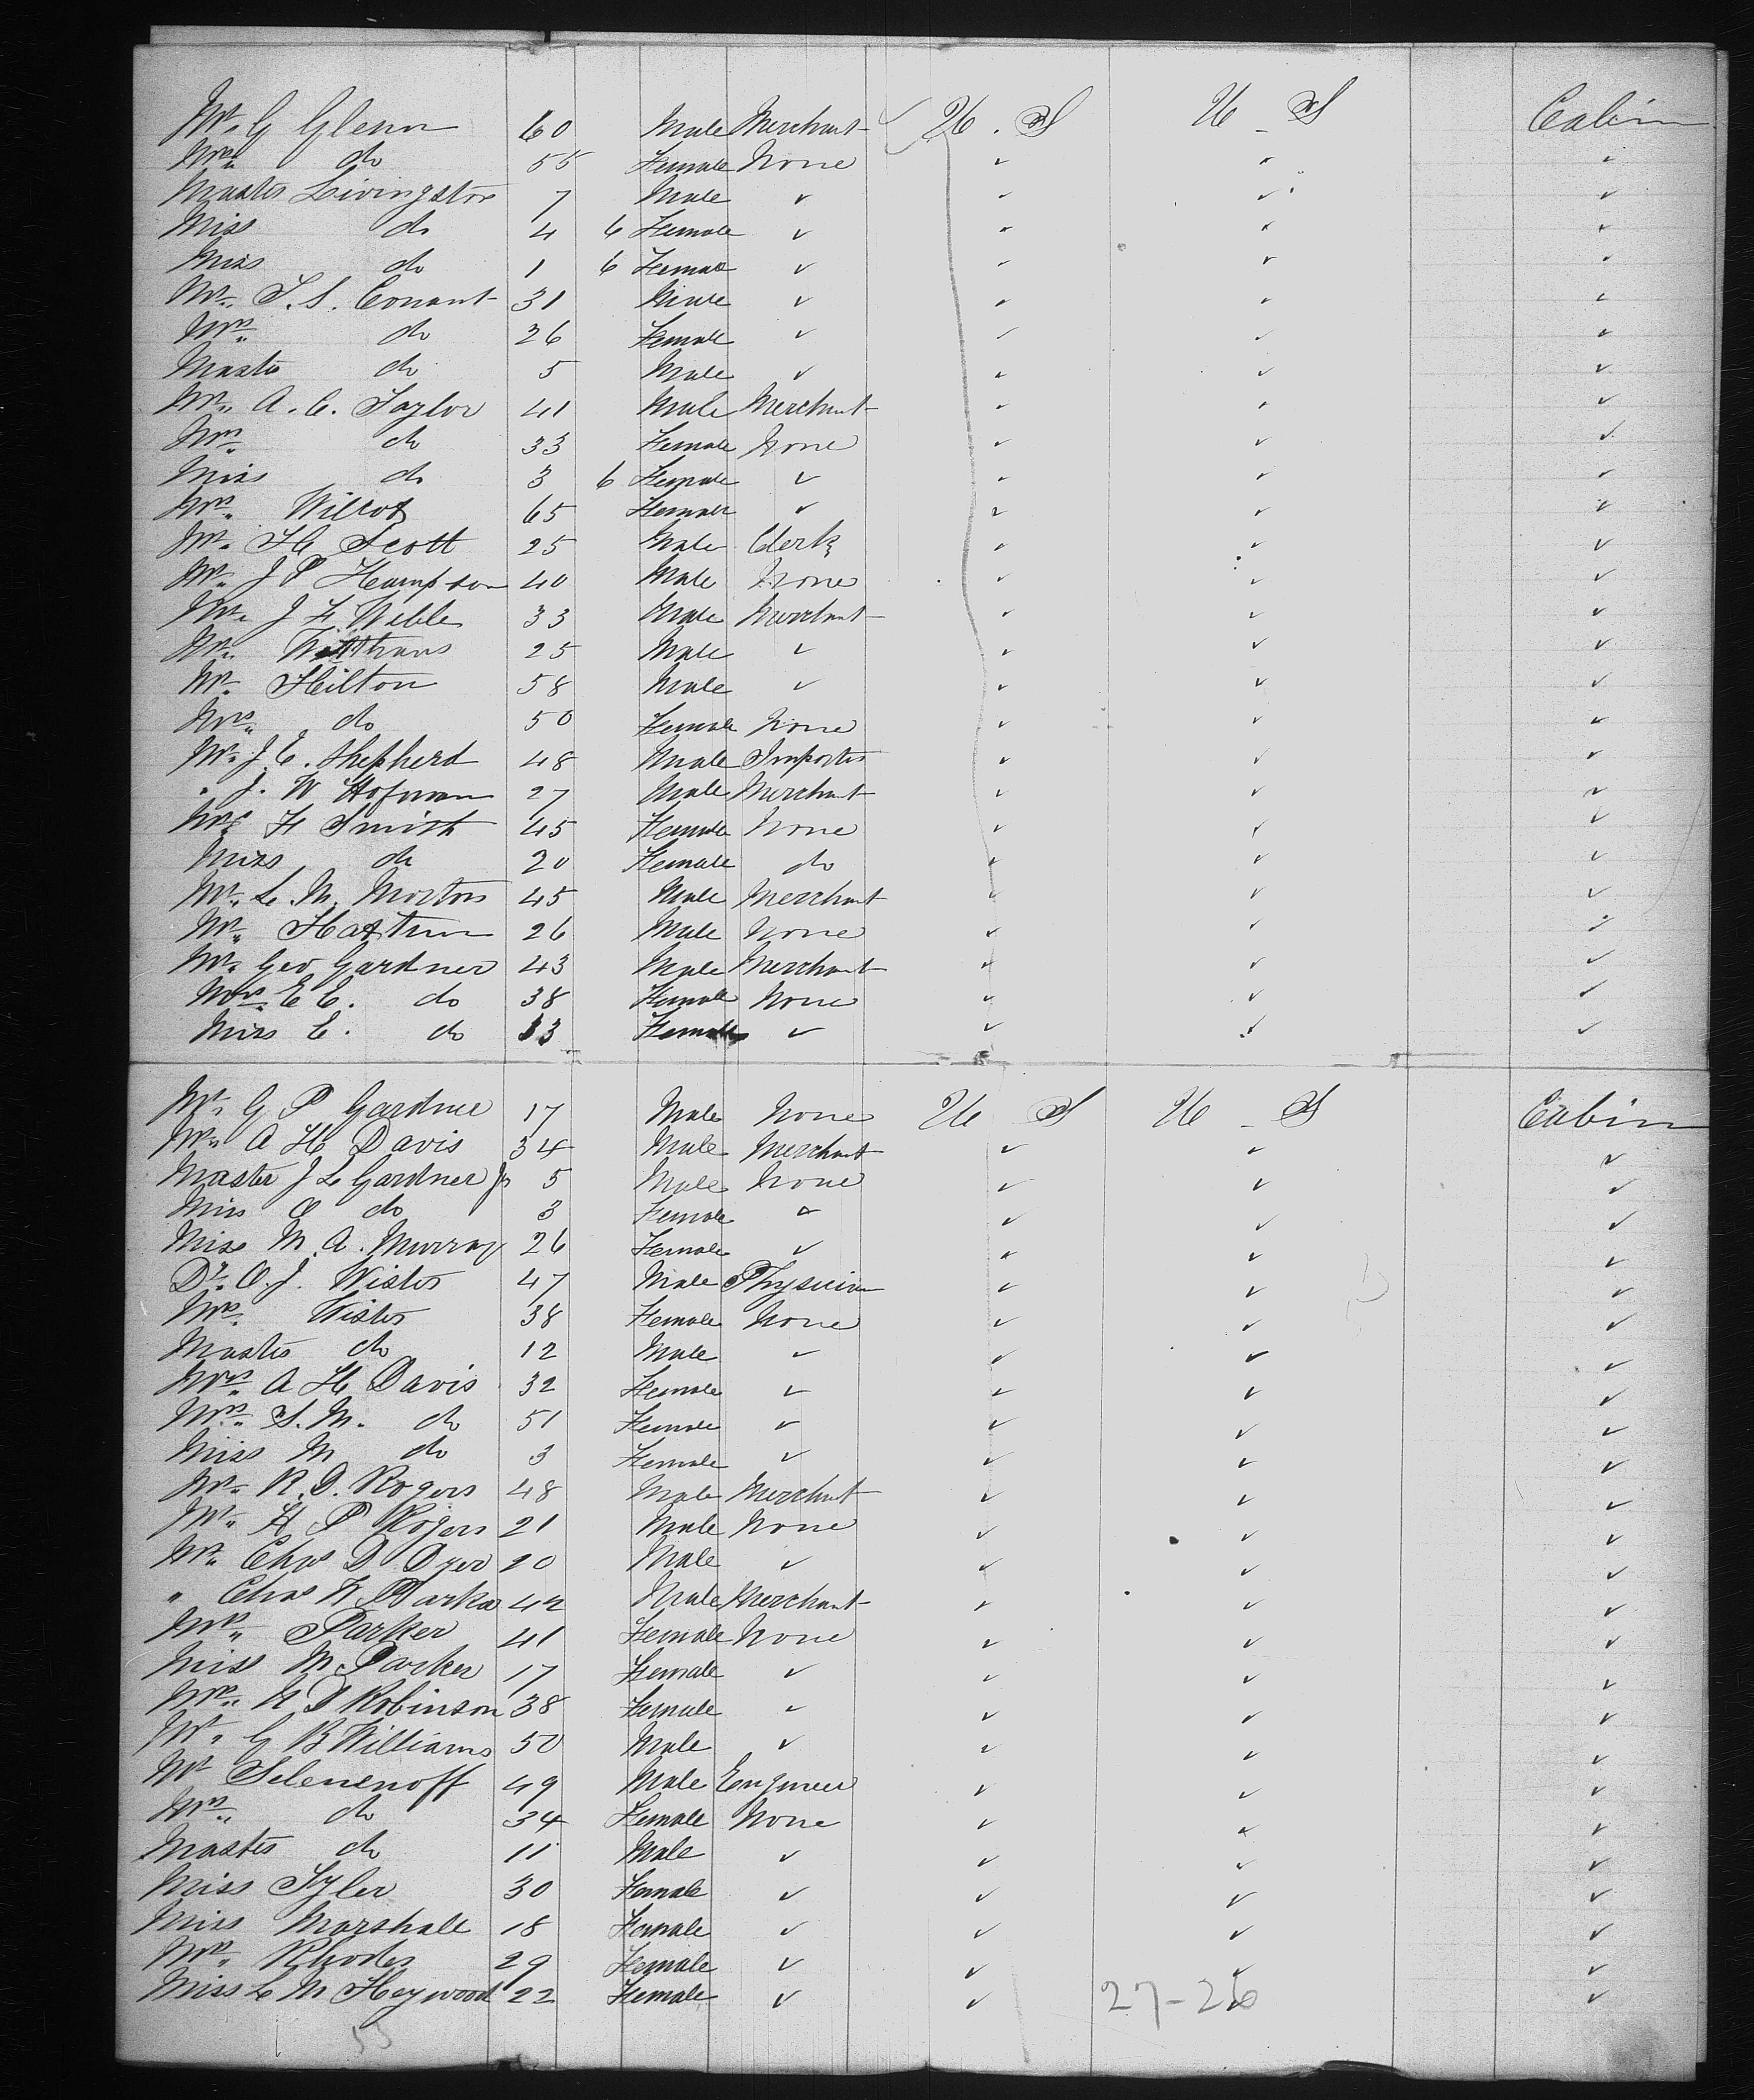 Mr. G Glenn 60 Male Merchant U. S U - S Cabin
Mrs. do 55 Female None ✓ ✓ ✓
Master Livingston 7 Male ✓ ✓ ✓ ✓
Miss do 4 6 Female ✓ ✓ ✓ ✓
Miss do 1 6 Female ✓ ✓ ✓ ✓
Mr. T. S. Conant 31 Male ✓ ✓ ✓ ✓
Mrs. do 26 Female ✓ ✓ ✓ ✓
Master do 5 Male ✓ ✓ ✓ ✓
Mr. A. C. Taylor 41 Male Merchant ✓ ✓ ✓
Mrs. do 33 Female None ✓ ✓ ✓
Miss do 3 6 Female ✓ ✓ ✓ ✓
Mrs. 65 Female ✓ ✓ ✓ ✓
Mr. H Scott 25 Male Clerk ✓ ✓ ✓
Mr. J P Hampson 40 Male None ✓ ✓ ✓
Mr. J F. Weble 33 Male Merchant ✓ ✓ ✓
Mr. 25 Male ✓ ✓ ✓ ✓
Mr. Hilton 58 Male ✓ ✓ ✓ ✓
Mrs. do 50 Female None ✓ ✓ ✓
Mr. J. C. Shepherd 48 Male Importer ✓ ✓ ✓
" J. W Hofman 27 Male Merchant ✓ ✓ ✓
Mrs F Smith 45 Female None ✓ ✓ ✓
Miss do 20 Female do ✓ ✓ ✓
Mr. L. M. Morton 45 Male Merchant ✓ ✓ ✓
Mr. 26 Male None ✓ ✓ ✓
Mr. Geo Gardner 43 Male Merchant ✓ ✓ ✓
Mrs. E E. do 38 Female None ✓ ✓ ✓
Miss E. do 13 Female ✓ ✓ ✓ ✓
Mr. G P Gardner 17 Male None U S U - S Cabin
Mr. A H Davis 34 Male Merchant ✓ ✓ ✓
Master J L Gardner Jr 5 Male None ✓ ✓ ✓
Miss O do 3 Female ✓ ✓ ✓ ✓
Miss M. A. Murray 26 Female ✓ ✓ ✓ ✓
Dr. O. J. Wister 47 Male Physician ✓ ✓ ✓
Mrs. Wister 38 Female None ✓ ✓ ✓
Master do 12 Male ✓ ✓ ✓ ✓
Mrs. A H Davis 32 Female ✓ ✓ ✓ ✓
Mrs. S. M. do 51 Female ✓ ✓ ✓ ✓
Miss M do 3 Female ✓ ✓ ✓ ✓
Mr. R. D. Rogers 48 Male Merchant ✓ ✓ ✓
Mr. H P Rogers 21 Male None ✓ ✓ ✓
Mr. Chas D Dyer 20 Male ✓ ✓ ✓ ✓
" Chas H Parker 42 Male Merchant ✓ ✓ ✓
Mrs. Parker 41 Female None ✓ ✓ ✓
Miss M Parker 17 Female ✓ ✓ ✓ ✓
Mrs. H D Robinson 38 Female ✓ ✓ ✓ ✓
Mr. G B Williams 50 Male ✓ ✓ ✓ ✓
Mr Selenenoff 49 Male Engineer ✓ ✓ ✓
Mrs. do 34 Female None ✓ ✓ ✓
Master do 11 Male ✓ ✓ ✓ ✓
Miss Tyler 30 Female ✓ ✓ ✓ ✓
Miss Marshall 18 Female ✓ ✓ ✓ ✓
Mrs. Rhodes 29 Female ✓ ✓ ✓ ✓
Miss L M Heywood 22 Female ✓ ✓ ✓ ✓
27-26
53